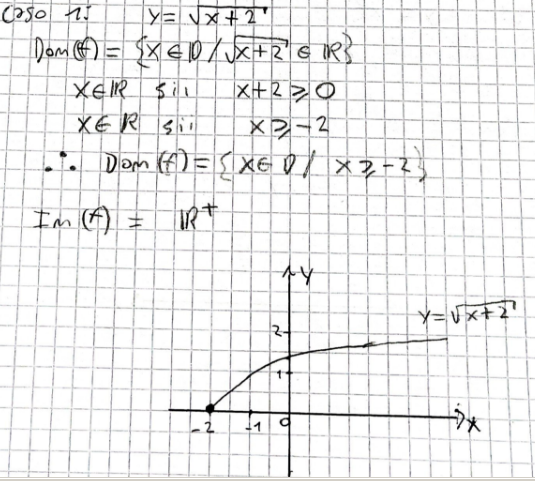 Caso 1: y = √x+2
Dom(f) = {x ∈ D / √x+2 ∈ IR}
x ∈ IR sii x+2 ⩾ 0
x ∈ IR sii x ⩾ -2
∴ Dom(f) = {x ∈ D / x ⩾ -2}
Im(f) = IR⁺
y
y = √x+2
2
1
-2 -1 0 x